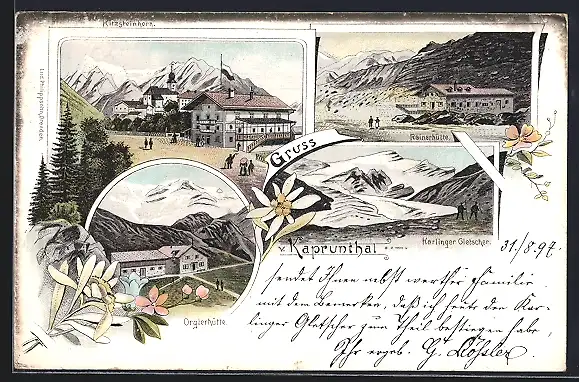 Kitzsteinhorn.
Rainerhütte.
Gruss
v. Kaprunthal
Karlinger Gletscher.
Orglerhütte.
31./8. 97.
sendet Ihnen nebst werther Familie
mit dem Bemerken, daß ich heute den Kar-
linger Gletscher zum Theil bestiegen habe,
Ihr ergeb. G. Lößler